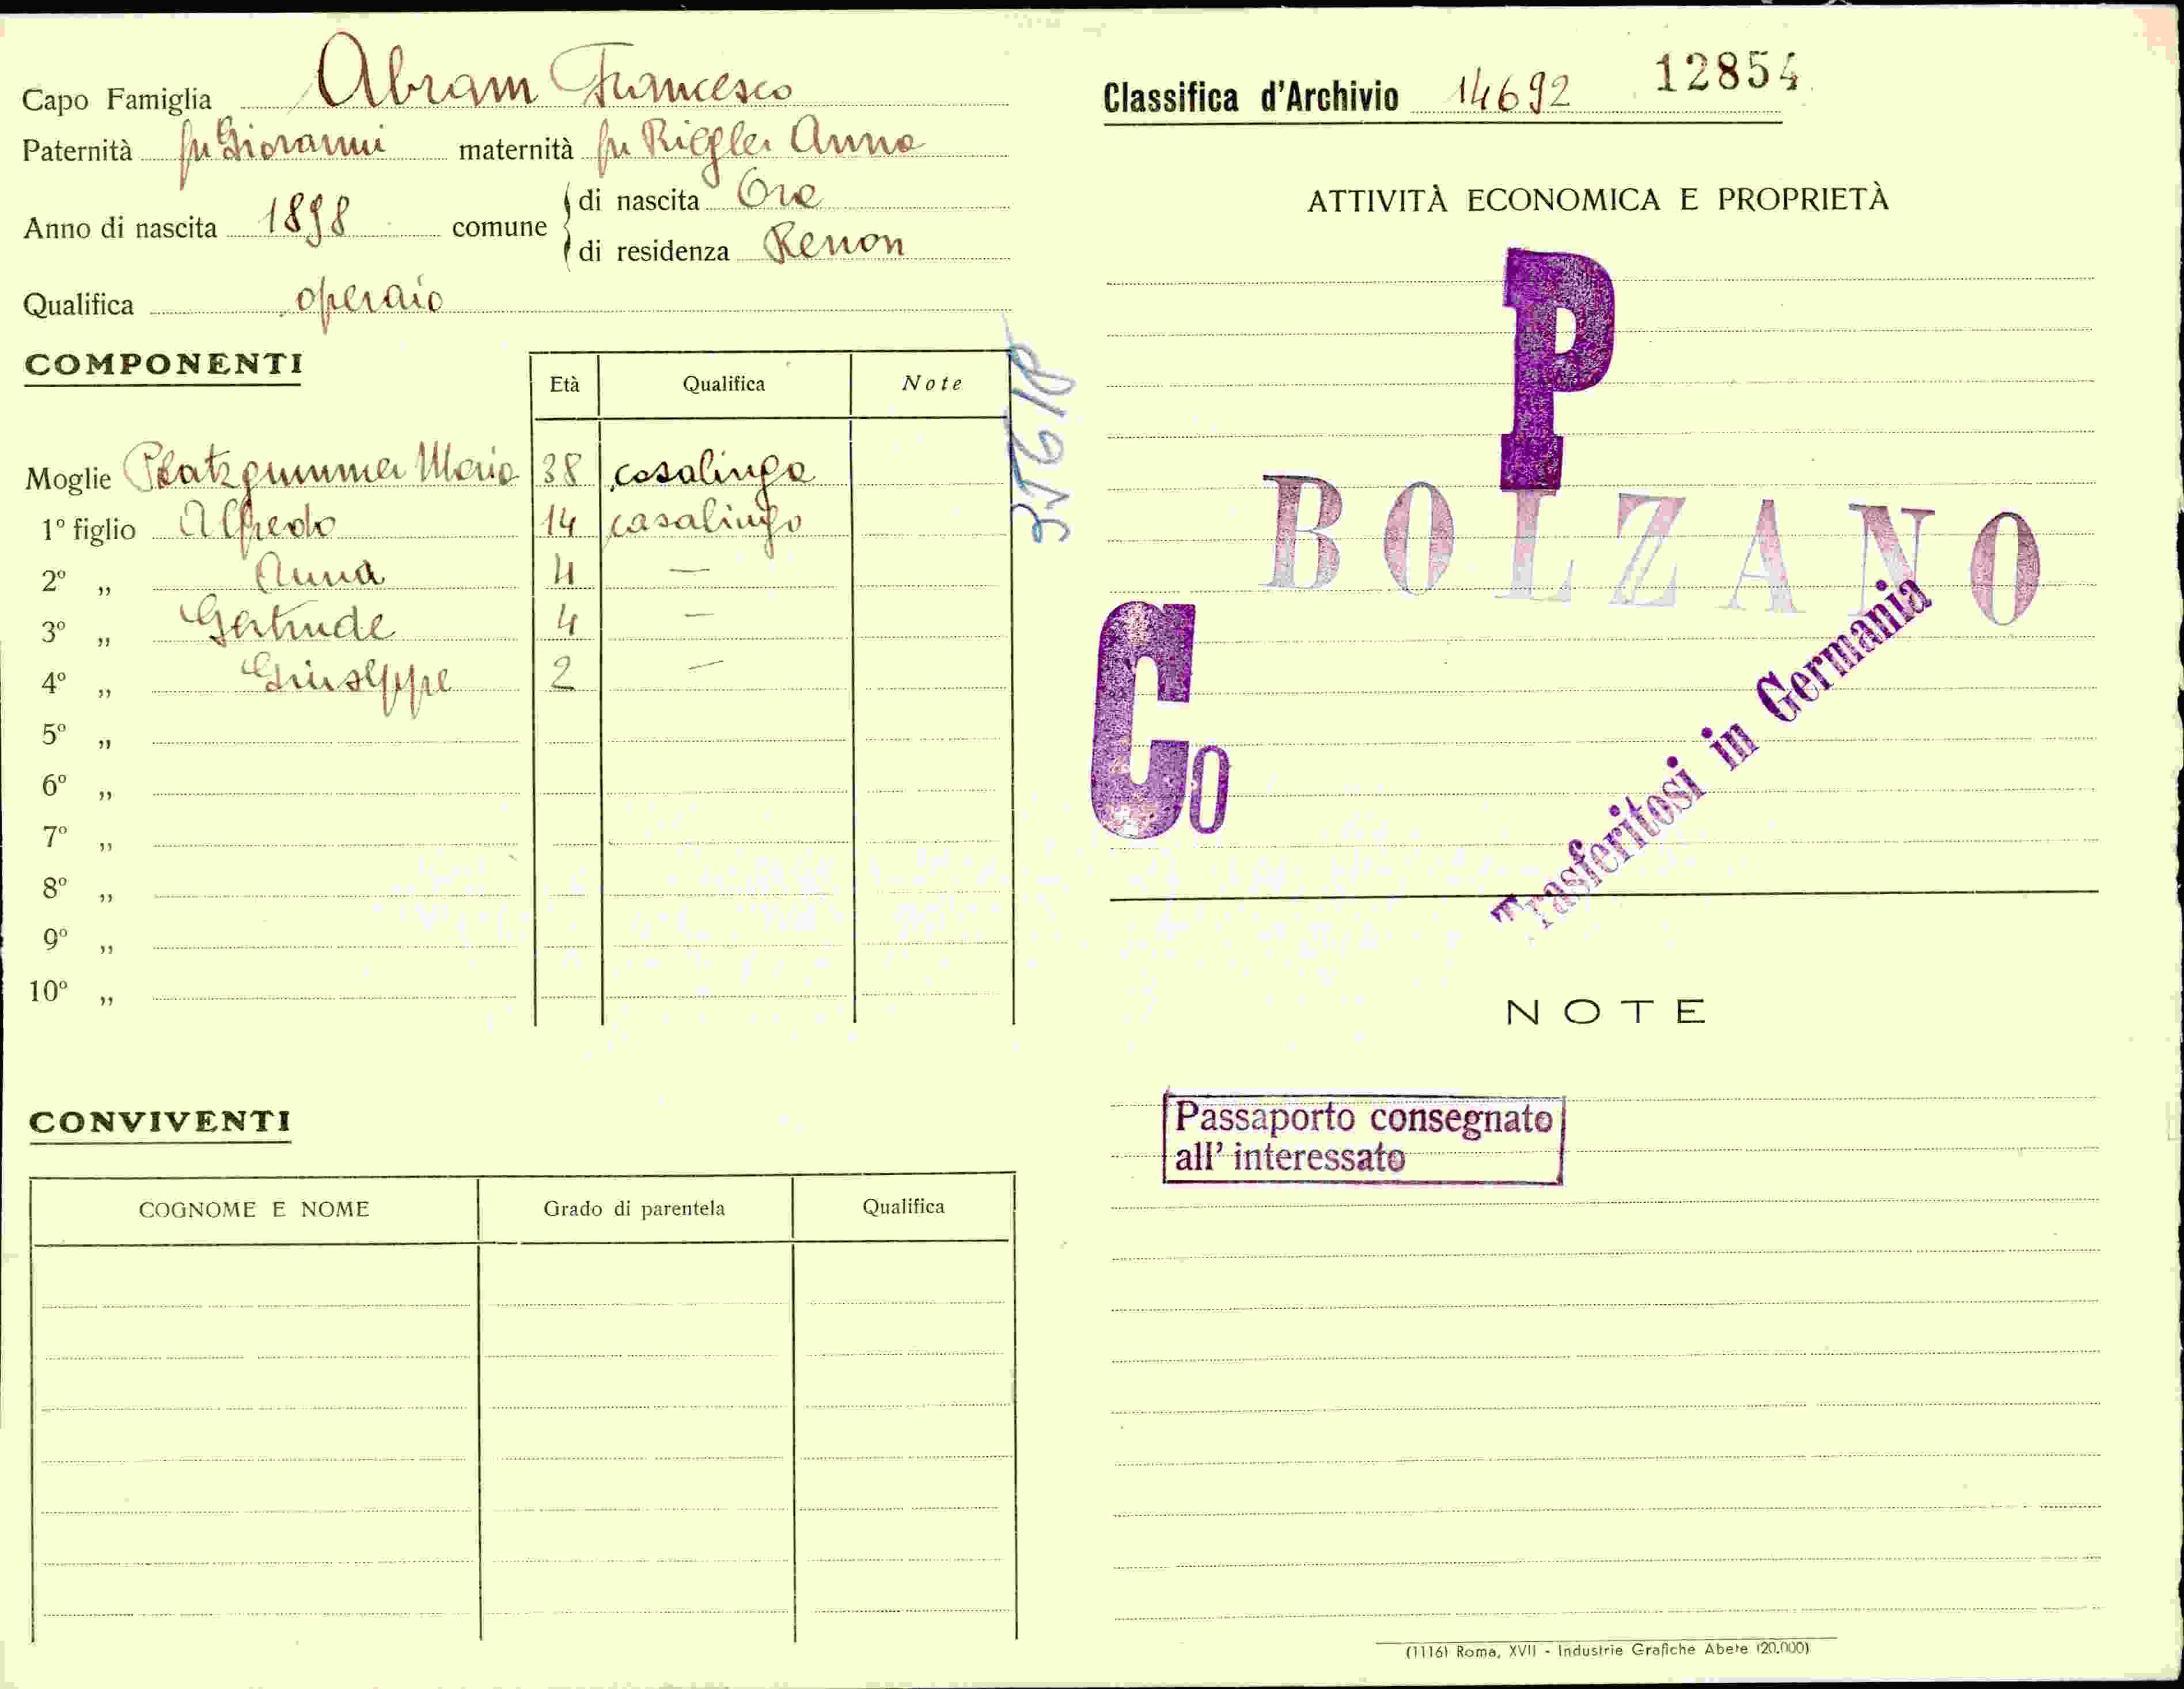 Capo Famiglia Abram Francesco
Paternità fu Giovanni maternità fu Riegler Anna
Anno di nascita 1898 comune di nascita Ora
di residenza Renon
Qualifica operaio
COMPONENTI
Età Qualifica Note
Moglie Platzgummer Maria 38 casalinga
1º figlio Alfredo 14 casalingo
2º „ Anna 4 —
3º „ Gertrude 4 —
4º „ Giuseppe 2 —
5º „
6º „
7º „
8º „
9º „
10º „
CONVIVENTI
COGNOME E NOME Grado di parentela Qualifica
Classifica d'Archivio 14692 12854
ATTIVITÀ ECONOMICA E PROPRIETÀ
P
BOLZANO
Co
Trasferitosi in Germania
NOTE
Passaporto consegnato
all' interessato
(1116) Roma, XVII - Industrie Grafiche Abete (20.000)